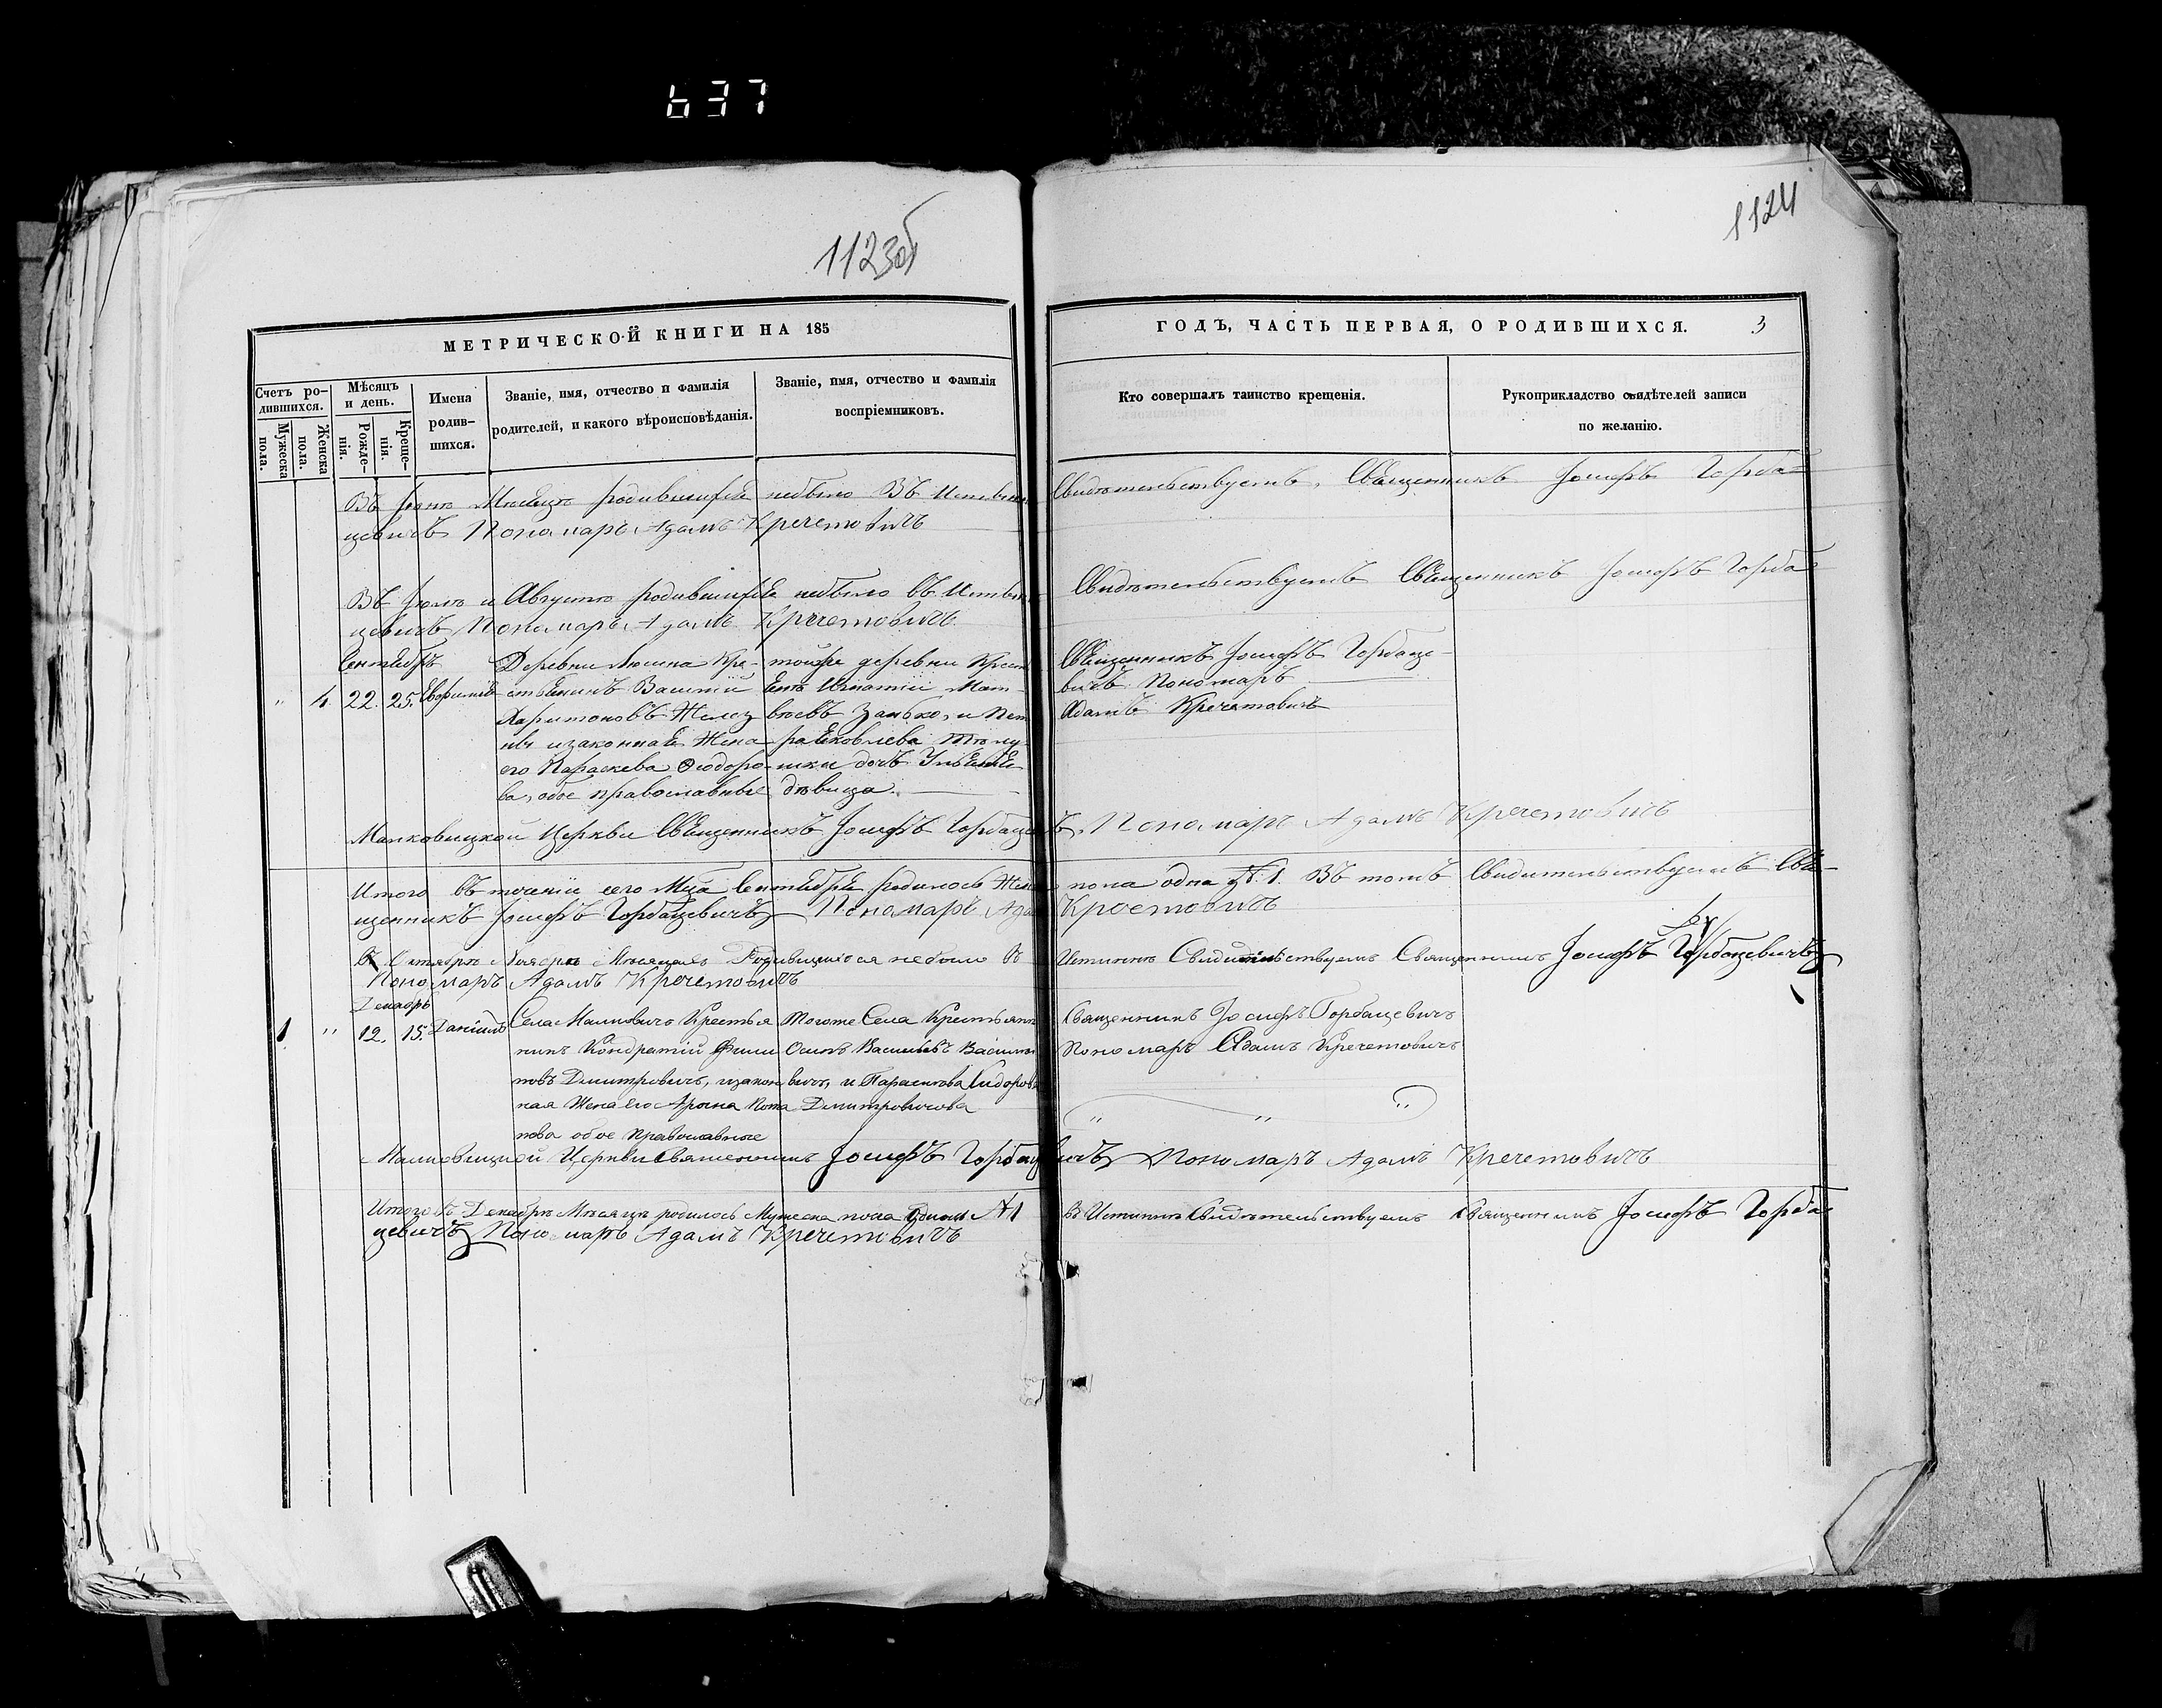 637
1123об
1124
МЕТРИЧЕСКОЙ КНИГИ НА 185
ГОДЪ, ЧАСТЬ ПЕРВАЯ, О РОДИВШИХСЯ. 3
Счетъ ро-
дившихся.
Мужеска
пола.
Женска
пола.
Мѣсяцъ
и день.
Рожде-
нія.
Креще-
нія.
Имена
родив-
шихся.
Званіе, имя, отчество и фамилія
родителей, и какого вѣроисповѣданія.
Званіе, имя, отчество и фамилія
воспріемниковъ.
Кто совершалъ таинство крещенія.
Рукоприкладство свидѣтелей записи
по желанію.
Въ Іюнѣ Мѣсяцѣ родившихся небыло Въ Свидѣтельствуемъ, Священникъ Іосифъ Горба=
цевичъ Пономарь Адамъ Кречетовичъ
Въ Іюлѣ и Августѣ родившихся небыло въ Свидѣтельствуемъ Священникъ Іосифъ Горба=
цевичъ Пономарь Адамъ Кречетовичъ
Сентябрь
" 4. 22. 25.
Деревни Кре-
стьянинъ Василій
Харитоновъ
и законная Жена
его Параскева Ѳеодоро-
ва, обое православные
тойже деревни Крест
Игнатій Мат-
вѣевъ и Пет
ра Яковлева
дочь
дѣвица.
Священникъ Іосифъ Горбаце-
вичъ Пономарь
Адамъ Кречетовичъ
Малковицкой Церкви Священникъ Іосифъ Горбаце Пономарь Адамъ Кречетовичъ
Итого въ теченіи сего Мца Сентября родилось Жен пола одна №. 1. Въ томъ Свидѣтельствуемъ Свя-
щенникъ Іосифъ Горбацевичъ Пономарь Ада Кречетовичъ
Въ Октябрѣ Ноябрѣ Мѣсяцахъ Родившихся небыло въ Истиннѣ Свидѣтельствуемъ Священникъ Іосифъ Горбацевичъ
Пономарь Адамъ Кречетовичъ
Декабрь
1 " 12. 15. Даніилъ
Села Малковичъ Крестья
нинъ Кондратій Фили
повъ Дмитровичъ, изакон
ная Жена его Арына
нова обое Православные
Тогоже Села Крестьянин
Осипъ Васильевъ Васил
вичъ, и Параскева Сидоров
Дмитровичова
Священникъ Іосифъ Горбацевичъ
Пономарь Адамъ Кречетовичъ
" " "
Малковицкой Церкви Священникъ Іосифъ Горбацевичъ Пономарь Адамъ Кречетовичъ
Итого въ Декабрѣ Мѣсяцѣ родилось Мужеска пола Одинъ №1 Въ Истиннѣ Свидѣтельствуемъ Священникъ Іосифъ Горба=
цевичъ Пономарь Адамъ Кречетовичъ